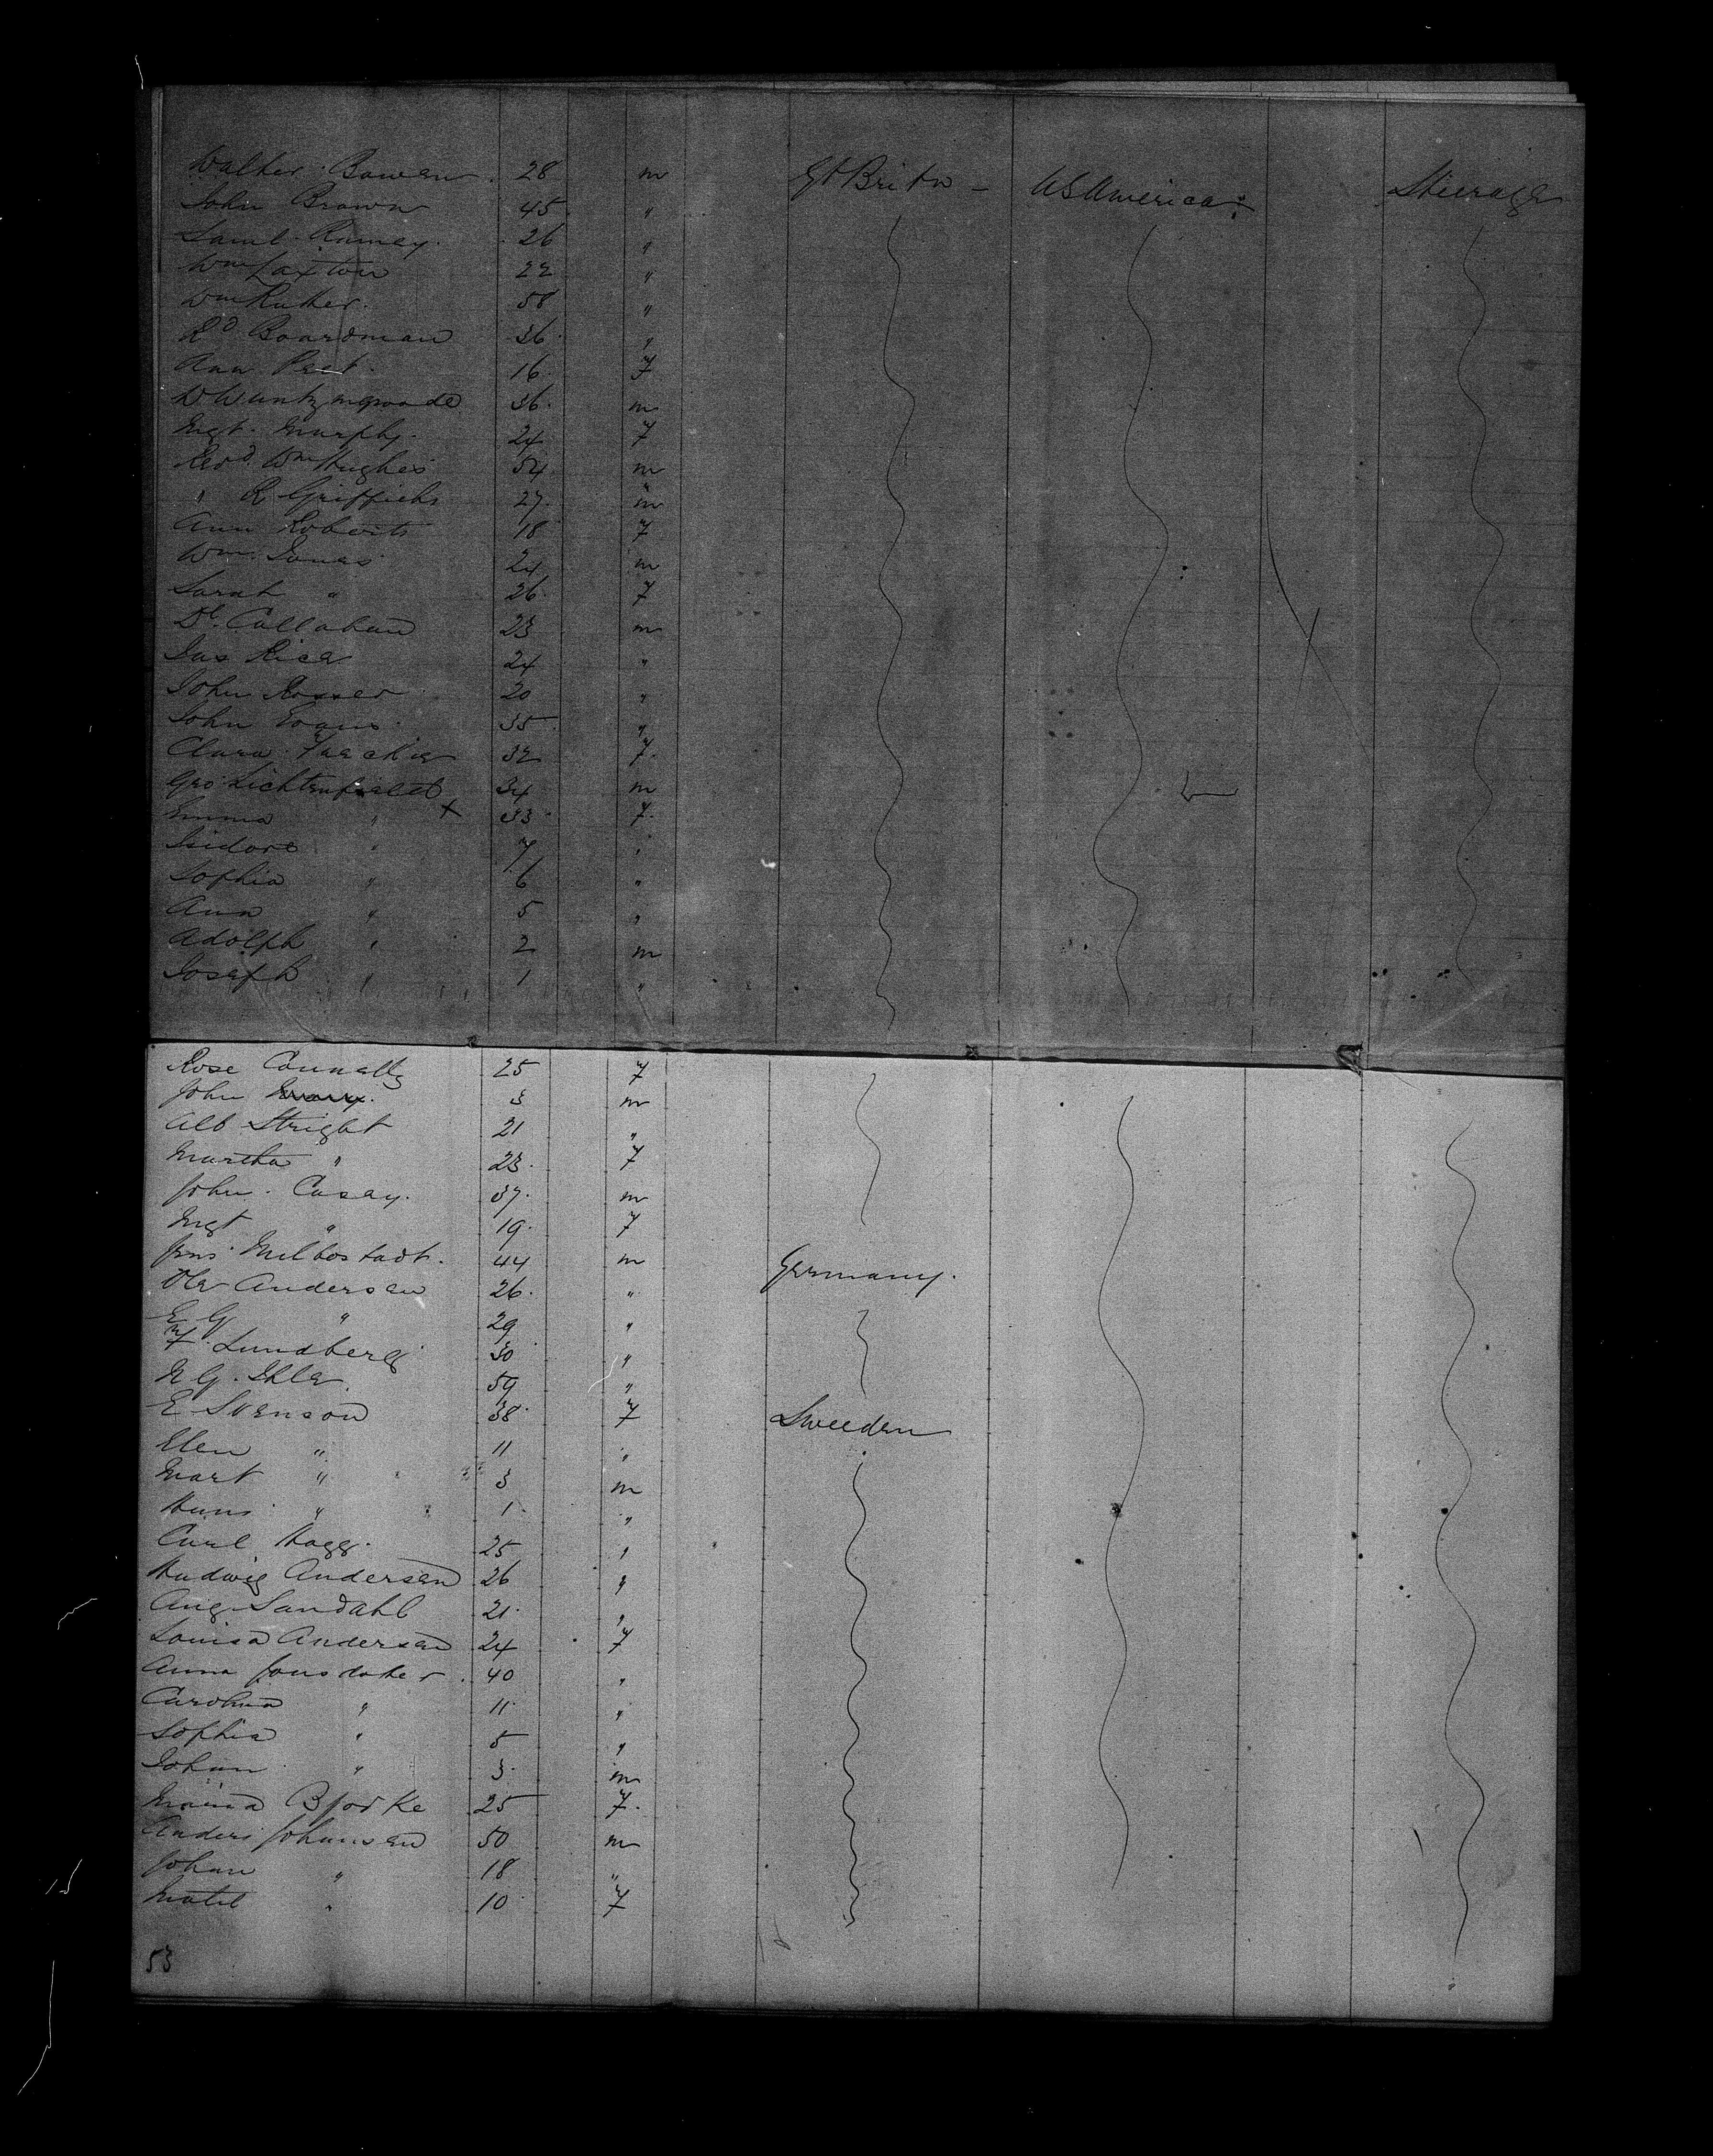 Walter Bowen 28 m Gt Britn - U S America: Steerage
John Brown 45 "
Saml. Ramey. 26 "
Wm Laxton 22 "
Wm Rutter. 58 "
Rd Boardman 36 "
Ann Peet. 16 F
36 m
Mgt. Murphy. 24 F
Revd. Wm Hughes 54 m
" R Griffiths 27 m
Ann Roberts 18 F
Wm. Jones 24 m
Sarah " 26 F
Dl. Callahan 23 m
Jas Rice 24 "
John Rosser 20 "
John Evans 35 "
Clara 32 F.
Geo 34 m
Emma " x 33 F.
Isidore " 7 "
Sophia " 6 "
Ann " 5 "
Adolph " 2 m
Joseph " 1 "
Rose Connolly 25 F
John 3 m
Alb Stright 21 "
Martha " 23 F
John Casey. 37 m
Mgt " 19 F
44 m Germany.
Ole Andersen 26 "
E G " 29 "
Lundberg 30 "
N G. Ihle. 59 "
E Svenson 38 F Sweeden
Elen " 11 "
Mart " 3 m
Hans " 1 "
Carl Hagg. 25 "
Hudwig Andersen 26 "
Aug Sandahl 21 "
Louisa Andersen 24 F
Anna Jonsdoter 40 "
Carolina " 11 "
Sophia " 5 "
Johan " 3 m
Bjorke 25 F.
Anders Johansen 50 m
Johan " 18 "
Matil " 10 F
53